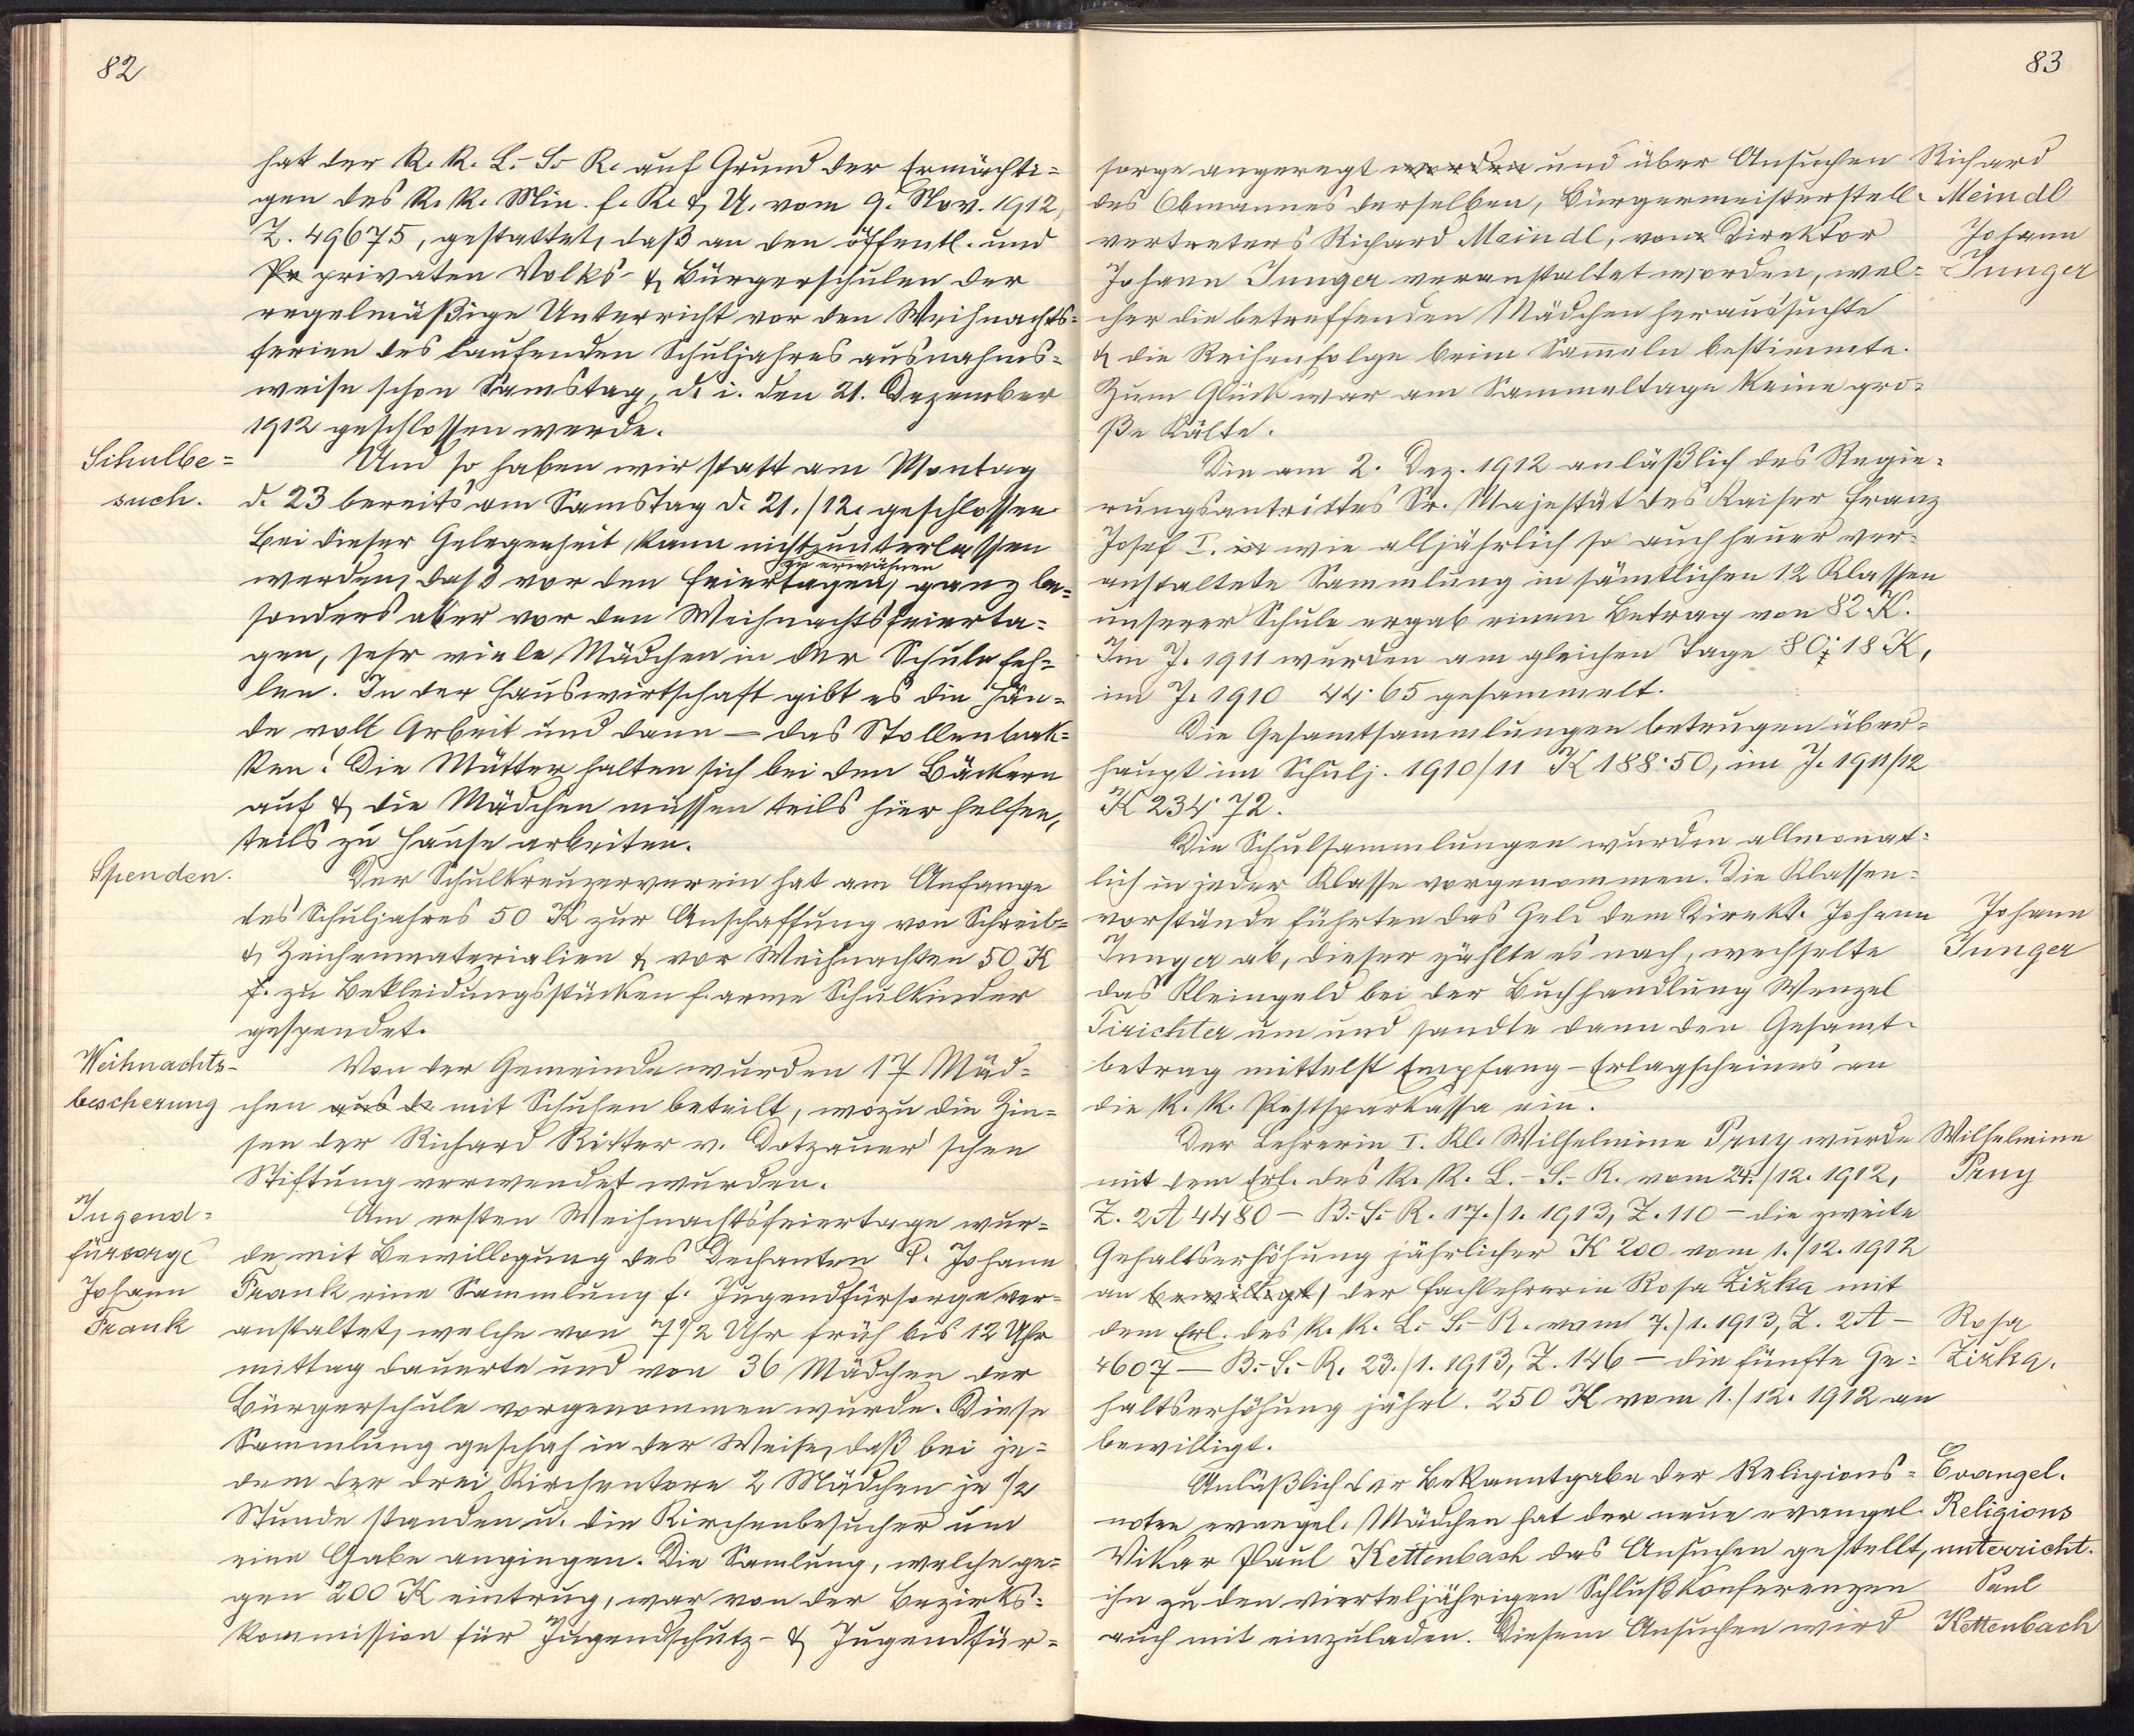 82
hat der K. K. L.-S.-R. auf Grund der Ermächti=
gen des K. K. Min. f. K. & U. vom 9. Nov. 1912,
Z. 49675, gestattet, daß an den öffentl. und
Pr privaten Volks- & Bürgerschulen der
regelmäßige Unterricht vor den Weihnachts=
ferien des laufenden Schuljahres ausnahms=
weise schon Samstag, d. i. den 21. Dezember
1912 geschlossen werde.
Schulbe=
such.
Und so haben wir statt am Montag
d. 23 bereits am Samstag d. 21./12. geschlossen.
Bei dieser Gelegenheit kann nicht unterlassen
zu erwähnen
werden, daß vor den Feiertagen, ganz be=
sonders aber vor den Weihnachtsfeierta=
gen, sehr viele Mädchen in der Schule feh=
len. In der Hauswirtschaft gibt es die Hän=
de voll Arbeit und dann — das Stollenbak=
ken! Die Mütter halten sich bei den Bäckern
auf & die Mädchen müssen teils hier helfen,
teils zu Hause arbeiten.
Spenden.
Der Schulkreuzerverein hat am Anfange
des Schuljahres 50 K zur Anschaffung von Schreib=
& Zeichenmaterialien & vor Weihnachten 50 K
f. zu Bekleidungsstücken f. arme Schulkinder
gespendet.
Weihnachts-
bescherung
Von der Gemeinde wurden 17 Mäd=
chen aus de mit Schuhen beteilt, wozu die Zin=
sen der Richard Ritter v. Dotzauer'schen
Stiftung verwendet wurden.
Jugend=
fürsorge
Johann
Frank
Am ersten Weihnachtsfeiertage wur=
de mit Bewilligung des Dechanten P. Johann
Frank eine Sammlung f. Jugendfürsorge ver=
anstaltet, welche von 7 1/2 Uhr früh bis 12 Uhr
mittag dauerte und von 36 Mädchen der
Bürgerschule vorgenommen wurde. Diese
Sammlung geschah in der Weise, daß bei je=
dem der drei Kirchentore 2 Mädchen je 1/2
Stunde standen u. die Kirchenbesucher um
eine Gabe angingen. Die Samlung, welche ge=
gen 200 K eintrug, war von der Bezirks=
kommission für Jugendschutz- & Jugendfür=
83
sorge angeregt worden und über Ansuchen
des Obmannes derselben, Bürgermeisterstell=
vertreters Richard Meindl, vom Direktor
Johann Junger veranstaltet worden, wel=
cher die betreffenden Mädchen heraussuchte
& die Reihenfolge beim Sam̅eln bestimmte.
Zum Glück war am Sammeltage keine gro=
ße Kälte.
Richard
Meindl
Johann
Junger
Die am 2. Dez. 1912 anläßlich des Regie=
rungsantrittes Sr. Majestät des Kaiser Franz
Josef I. in wie alljährlich so auch heuer ver=
anstaltete Sammlung in sämtlichen 12 Klassen
unserer Schule ergab einen Betrag von 82 K.
Im J. 1911 wurden am gleichen Tage 80·18 K,
im J. 1910 44·65 gesammelt.
Die Gesamtsammlungen betrugen über=
haupt im Schulj. 1910/11 K 188·50, im J. 1911/12
K 234·72.
Die Schulsammlungen wurden allmonat=
lich in jeder Klasse vorgenommen. Die Klassen=
vorstände führten das Geld dem Direkt. Johann
Junger ab, dieser zählte es nach, wechselte
das Kleingeld bei der Buchhandlung Wenzel
Tirichter um und sandte dann den Gesamt=
betrag mittelst Empfang-Erlagscheines an
die K. K. Postsparkassa ein.
Johann
Junger
Der Lehrerin I. Kl. Wilhelmine Prny wurde
mit dem Erl. des K. K. L.-S.-R. vom 24./12. 1912,
Z. 2A 4480 — B.-S.-R. 17./1. 1913, Z. 110 — die zweite
Gehaltserhöhung jährlicher K 200 vom 1./12. 1912
an bewilligt, der Fachlehrerin Rosa Žižka mit
dem Erl. des K. K. L.-S.-R. vom 7./1. 1913, Z. 2A —
4607 — B.-S.-R. 23./1. 1913, Z. 146 — die fünfte Ge=
haltserhöhung jährl. 250 K vom 1./12. 1912 an
bewilligt.
Wilhelmine
Prny
Rosa
Žižka.
Anläßlich der Bekanntgabe der Religions=
noten evangel. Mädchen hat der neue evangel.
Vikar Paul Kettenbach das Ansuchen gestellt,
ihn zu den vierteljährigen Schlußkonferenzen
auch mit einzuladen. Diesem Ansuchen wird
Evangel.
Religions
unterricht.
Paul
Kettenbach